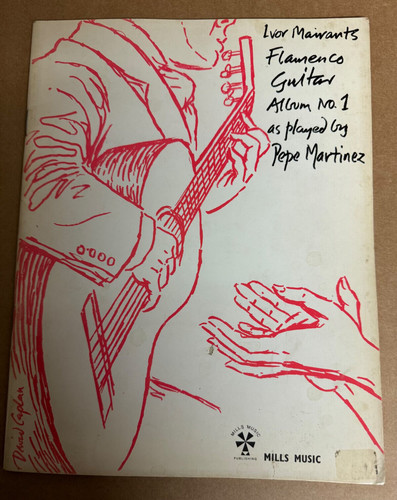 Ivor Mairants
Flamenco
Guitar
Album No. 1
as played by
Pepe Martinez
David Caplan
MILLS MUSIC
PUBLISHING
MILLS MUSIC